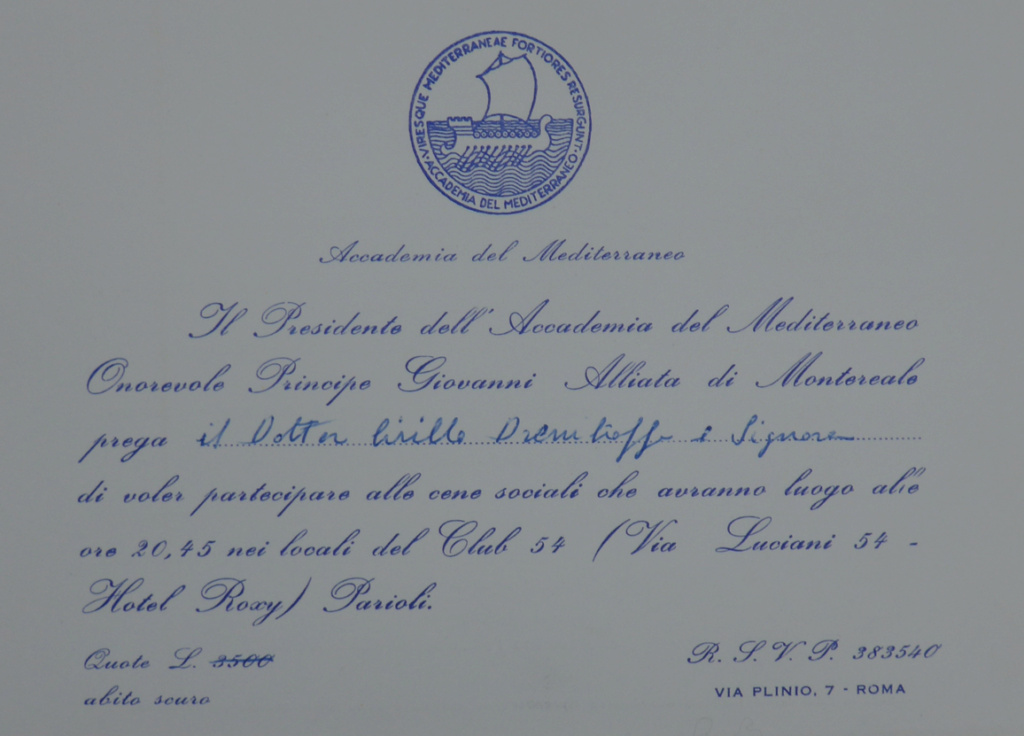 VIRESQUE MEDITERRANEAE FORTIORES RESURGUNT · ACCADEMIA DEL MEDITERRANEO ·
Accademia del Mediterraneo
Il Presidente dell'Accademia del Mediterraneo
Onorevole Principe Giovanni Alliata di Montereale
prega il Dottor Cirillo i Signora
di voler partecipare alle cene sociali che avranno luogo alle
ore 20,45 nei locali del Club 54 (Via Luciani 54 -
Hotel Roxy) Parioli.
Quote L. 3500
abito scuro
R. S. V. P. 383540
VIA PLINIO, 7 - ROMA